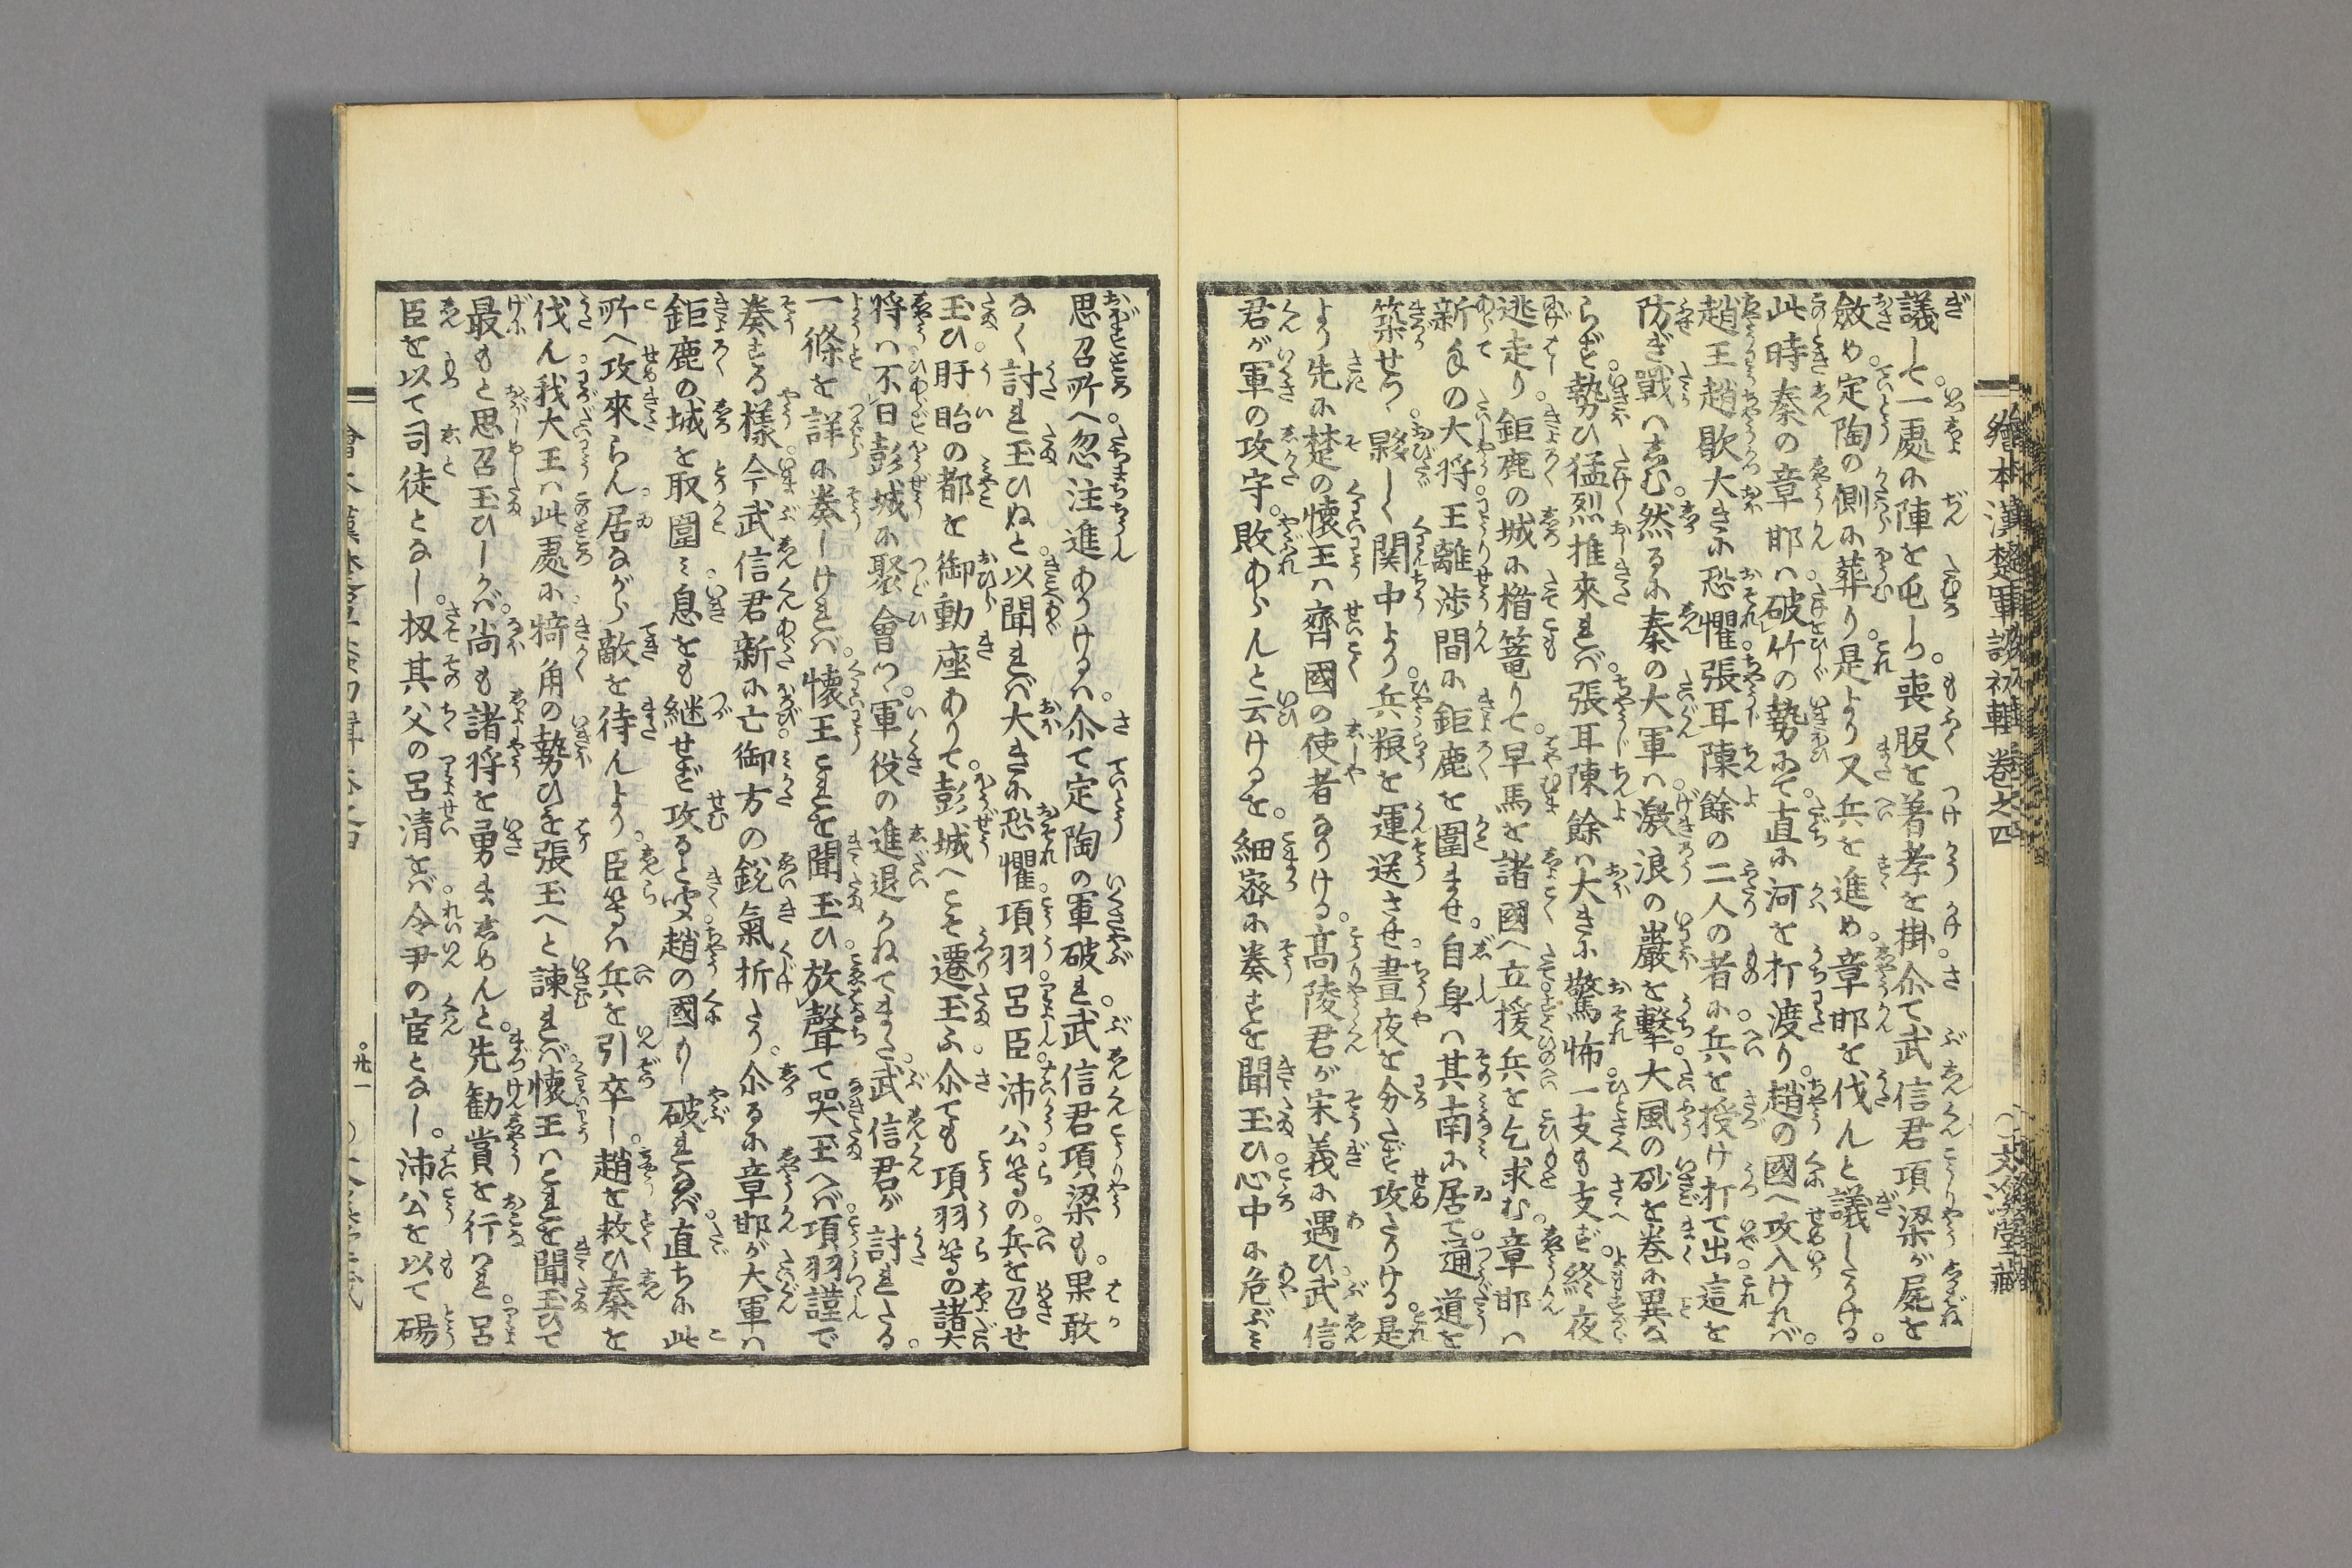 繪本漢楚軍談初輯 卷之四
議して一處に陣を屯し。喪服を著孝を掛。尒て武信君項梁が屍を
斂め定陶の側に葬り。是より又兵を進め。章邯を伐んと議したりける。
此時秦の章邯は。破竹の勢にて。直に河を打渡り。趙の國へ攻入ければ。
趙王趙歇大きに恐懼。張耳陳餘の二人の者に。兵を授け打て出。這を
防ぎ戰へしむ。然るに秦の大軍は。激浪の巖を撃。大風の砂を卷に異な
らず。勢ひ猛烈推來れば。張耳陳餘は大きに驚怖。一支も支ず。終夜
逃走り。鉅鹿の城に楯篭りて。早馬を諸國へ立。援兵を乞求む。章邯は
新手の大将王離渉間に鉅鹿を圍ませ。自身は其南に居て。通道を
築せつ。夥しく関中より。兵粮を運送させ。晝夜を分たず攻たりける。是
より先に楚の懷王は齊國の使者なりける。高陵君が宋義に遇ひ。武信
君が軍の攻守。敗あらんと云けるを。細密に奏すを聞玉ひ。心中に危ぶミ
思召所へ。忽注進ありけるは。尒て定陶の軍破れ。武信君項梁も。果敢
なく討れ玉ひぬと。以聞れば大きに恐懼。項羽呂臣。沛公等の兵を召せ
玉ひ。盱眙の都を御動座ありて。彭城へこそ遷玉ふ。尒ても項羽等の諸大
将は不日彭城に聚會つ。軍役の進退かねてまた。武信君が討れたる。
一條を詳に奏しければ。懷王これを聞玉ひ。放聲て哭玉へば。項羽謹で
奏する樣。今武信君新に亡。御方の鋭氣折たり。尒るに章邯が大軍は
鉅鹿の城を取圍ミ。息をも継せず攻ると聞。趙の國りし破れなば。直ちに此
所へ攻來らん。居ながら敵を待んより。臣等は兵を引卒し。趙を救ひ秦を
伐ん。我大王は此處に。犄角の勢ひを張玉へと諫れば。懷王はこれを聞玉ひて
最もと思召玉ひしかば。尚も諸将を勇ましめんと。先勧賞を行はれ。呂
臣を以て司徒となし。扨其父の呂清をば。令尹の宦となし。沛公を以て碭